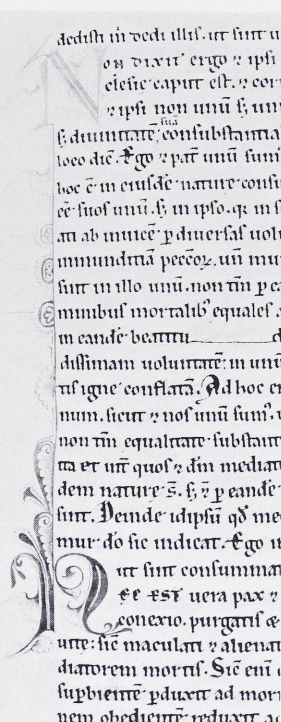 dedisti m̄ dedi illis. ut sint u
Non dixit ergo ⁊ ipsi
ęclesie caput est. ⁊ cor
⁊ ipsi non unū s; un
s; diuinitate sua consubstantia
loco diē. Ego ⁊ pat̄ unū sum
hoc ē in eiusdē nature consu
eē suos unū. s; in ipso. q̄ in s
ati ab inuicē ꝑ diuersas uolu
inmunditiā peccoꝝ. un̄ mu
sint in illo unū. non tm̄ ꝑ ea
minibus mortalib; equales a
in eandē beatitu
dissimam uoluntatē: in unū
tis igne conflatā. Ad hoc en
num. sicut ⁊ nos unū sum᷒. u
non tm̄ equalitate substant
ita et uīt quos ⁊ dm̄ mediat
dem nature s̄. s; ⁊ ꝑ eandē
sint. Deinde idipsū qđ me
mur do sic indicat. Ego in
ut sint consummat
Ec est uera pax ⁊
conexio. purgatis
uite: sic̄ maculati ⁊ alienat
diatorem mortis. Sic̄ eni
supbientē ꝑduxit ad mor
nem obedientē reduxit ad